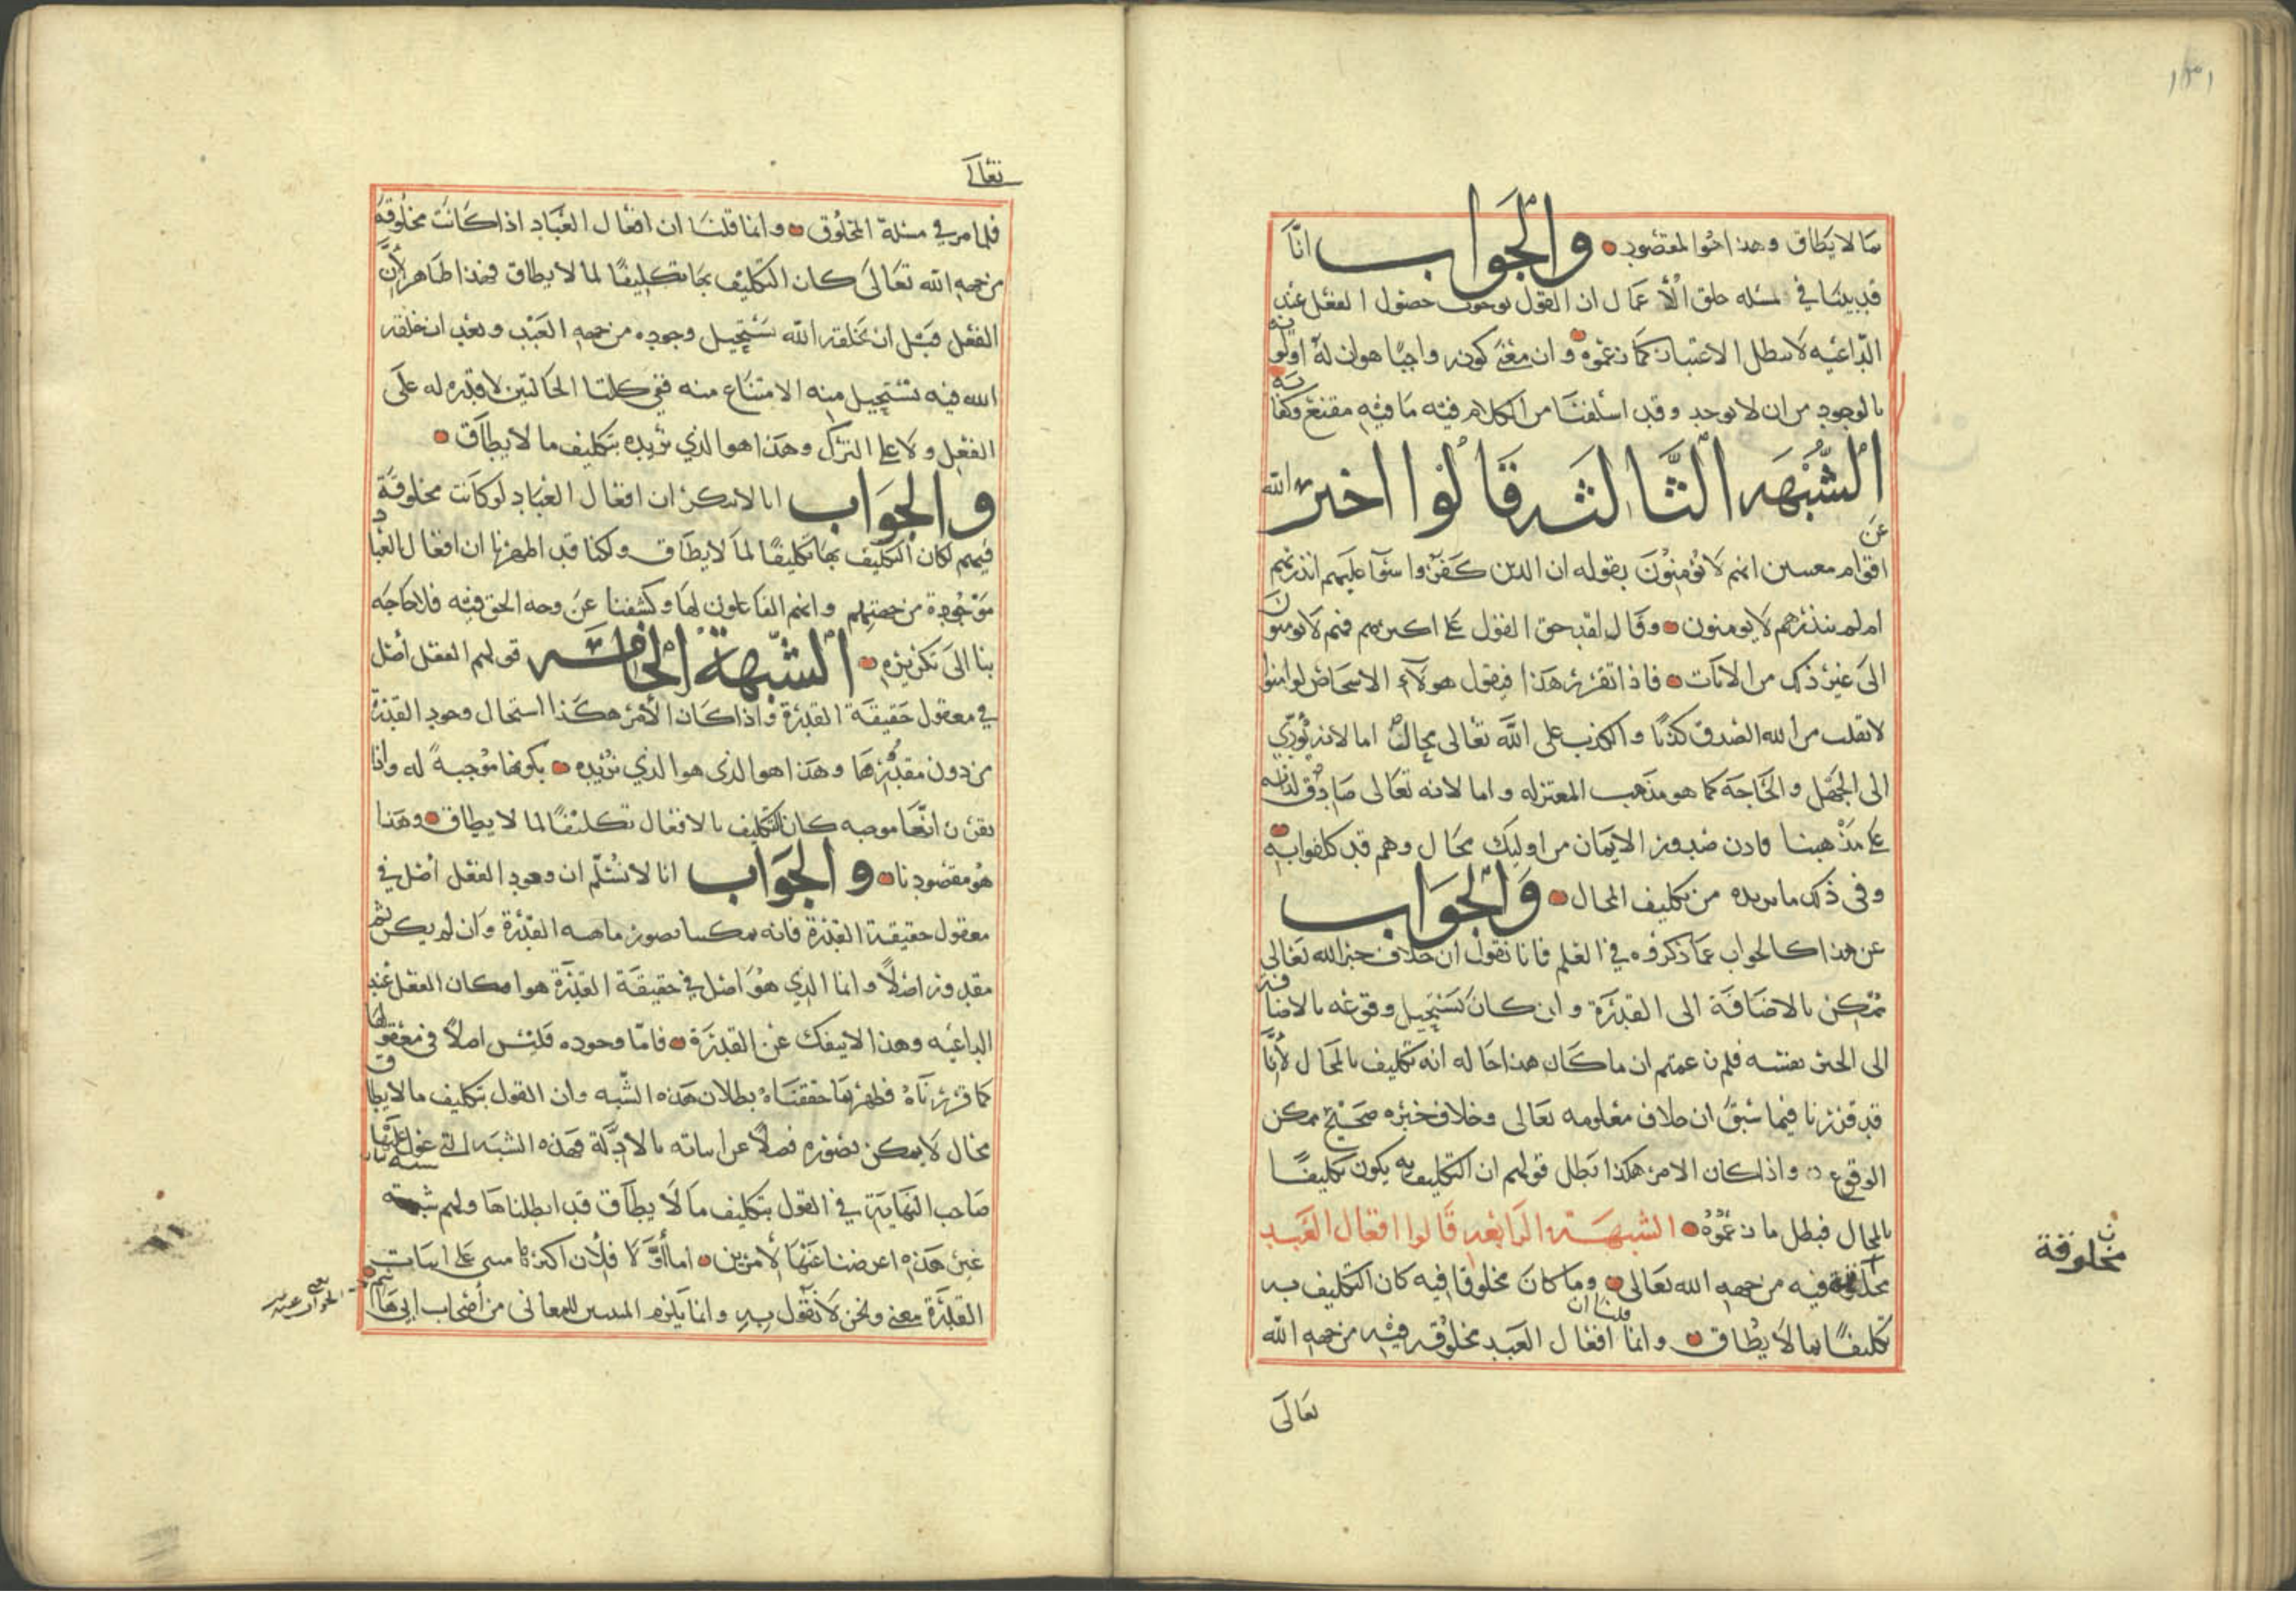 ١٣١
ما لا يطاق وهذا هو المقصود والجواب انَّا
قد بينا في مسئله خلق الأعمال ان القول بوجوب حصول الفعل عند
الدّاعيه لا يبطل الاختيار كما زعموه وان معنى كونه واجبًا هو ان له اولويه
بالوجود من ان لا يوجد وقد اسلفنا من الكلام فيه ما فيه مقنع وكفايه
الشُّبْهَه الثَّالثه قَالُوا اخبر الله عن
اقوام معينين انهم لا يؤمنون بقوله ان الذين كفروا سوآ عليهم انذرتهم
ام لم تنذرهم لا يومنون وقال لقد حق القول على اكثرهم فهم لا يومنون
الى غير ذلك من الايات فاذا تقرر هذا فنقول هولآء الاشخاص لو امنوا
لانقلب من الله الصدق كذبًا والكذب على الله تعالى محال اما لانه يؤدّي
الى الجهل والحاجه كما هو مذهب المعتزله واما لانه تعالى صادق لذاته
على مذهبنا فاذن صدور الايمان من اوليك محال وهم قد كلفوا به
وفى ذلك ما نريده من تكليف المحال والجواب
عن هذا كالجواب عما ذكروه في العلم فانا نقول ان خلاف خبر الله تعالى
ممكن بالاضافة الى القدرة وان كان يستحيل وقوعه بالاضافه
الى الخبر نفسه فلم زعمتم ان ما كان هذا حاله انه تكليف بالمحال لأنا
قد قررنا فيما سبق ان خلاف معلومه تعالى وخلاف خبره صحيح ممكن
الوقوع واذا كان الامر هكذا بطل قولهم ان التكليف به يكون تكليفًا
بالمحال فبطل ما زعموه الشبهة الرابعه قالوا افعال العبد
مخلوقة فيه من جهه الله تعالى وما كان مخلوقا فيه كان التكليف به
تكليفًا بما لا يطاق وانما قلنا ان افعال العبد مخلوقه فيه من جهه الله
تعالى
ن
مخلوقة
تعالى
فلما مر في مسئلة المخلوق وانما قلنا ان افعال العباد اذا كانت مخلوقه
من جهه الله تعالى كان التكليف بها تكليفًا لما لا يطاق فهذا ظاهر لأن
الفعل قبل ان يخلقه الله يستحيل وجوده من جهه العبد وبعد ان خلقه
الله فيه تستحيل منه الامتناع منه ففي كلتا الحالتين لا قدره له على
الفعل ولا على الترك وهذا هو الذي نريده بتكليف ما لا يطاق
والجواب انا لا ننكر ان افعال العباد لو كانت مخلوقة
فيهم لكان التكليف بها تكليفًا لما لا يطاق ولكنا قد اظهرنا ان افعال العباد
موجودة من جهتهم وانهم الفاعلون لها وكشفنا عن وجه الحق فيه فلا حاجه
بنا الى تكريره الشبهة الخامسه قولهم الفعل أصل
في معقول حقيقة القدرة واذا كان الأمر هكذا استحال وجود القدرة
من دون مقدورها وهذا هو الذى هو الذي نريده بكونها موجبةً له واذا
تقرر انها موجبه كان التكليف بالافعال تكليفًا لما لا يطاق وهذا
هو مقصودنا والجواب انا لا نسلّم ان وجود الفعل أصل في
معقول حقيقة القدرة فانه يمكننا تصور ماهيه القدرة وان لم يكن ثم
مقدور اصلًا وانما الذي هو اصل في حقيقة القدرة هو امكان الفعل عند
الداعيه وهذا لا ينفك عن القدرة فامّا وجوده فليس اصلًا في معقولها
كما قررناه فظهر بما حققناه بطلان هذه الشّبه وان القول بتكليف ما لا يطاق
محال لا يمكن تصوره فضلًا عن اثباته بالادلّة فهذه الشبه التي عول عليها
صاحب النهاية في القول بتكليف ما لا يطاق قد ابطلناها ولهم شبه
غير هذه اعرضنا عنها لأمرين اما أوّلا فلأن اكثرها مبنى على اثبات
القدرة معنى ونحن لا نقول به وانما يلزم المثبتين للمعانى من أصحاب ابى هاشم